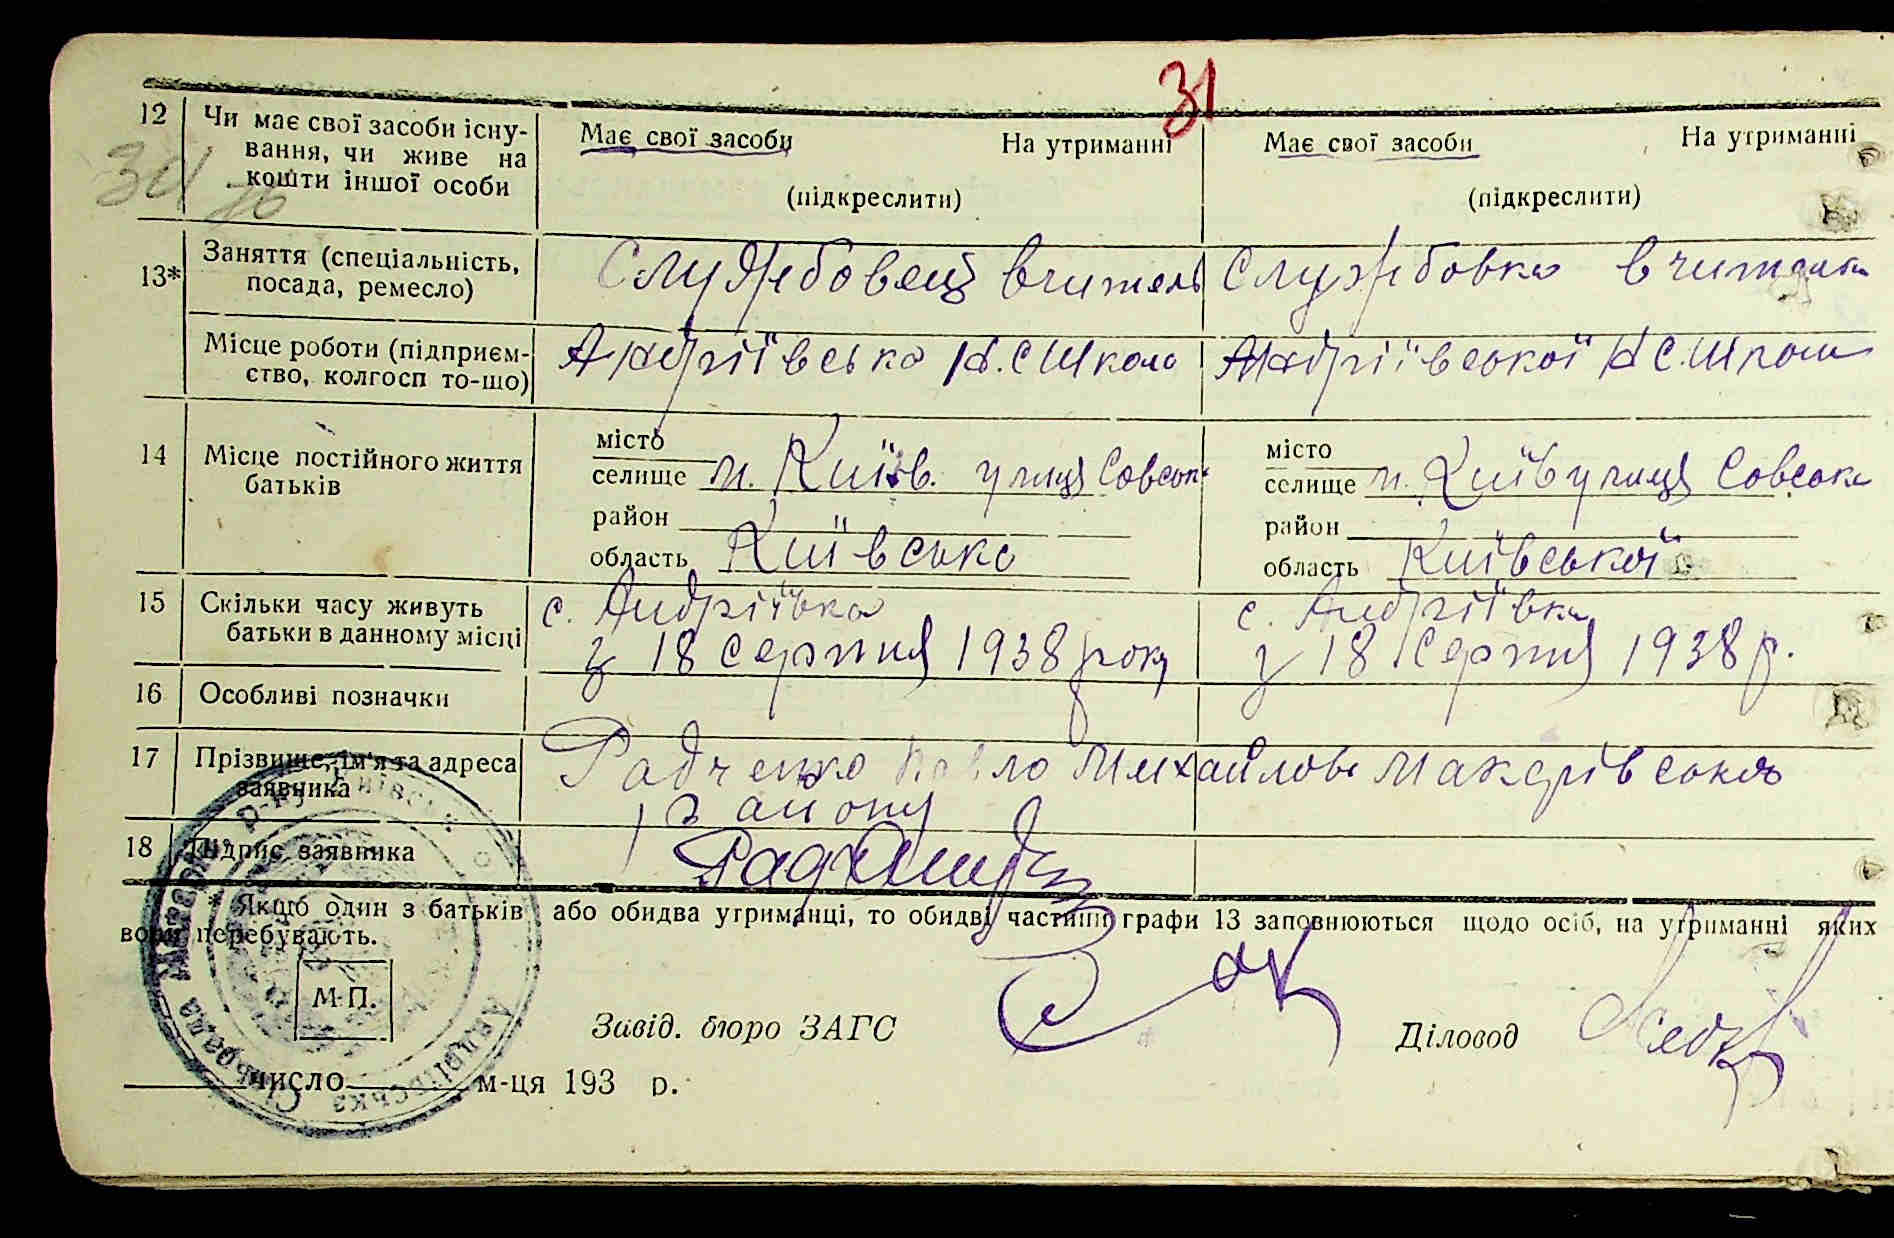 31
12 Чи має свої засоби існу- Має свої засоби На утриманні Має свої засоби На утриманні
вання, чи живе на
кошти іншої особи (підкреслити) (підкреслити)
34
13* Заняття (спеціальність, Службовец вчитель Службовка вчителька
посада, ремесло)
Місце роботи (підприєм- Андріївська Н.С Школа Андріївської Н С. Школи
ство, колгосп то-що)
14 Місце постійного життя місто місто
батьків селище м. Київ. улиця Совськ селище м. Київ улиця Совська
район район
область Київська область Київської
15 Скільки часу живуть с. Андріївка с. Андріївка
батьки в данному місці з 18 Серпня 1938 року з 18 Серпня 1938 р.
16 Особливі позначки
17 Прізвище, ім'я та адреса Радченко Павло Михайлов Макарівського
заявника району
18 Підпис заявника
* Якщо один з батьків або обидва утриманці, то обидві частини графи 13 заповнюються щодо осіб, на утриманні яких
вони перебувають.
М. П.
Завід. бюро ЗАГС Діловод
число м-ця 193 р.
Андріївська Сільрада